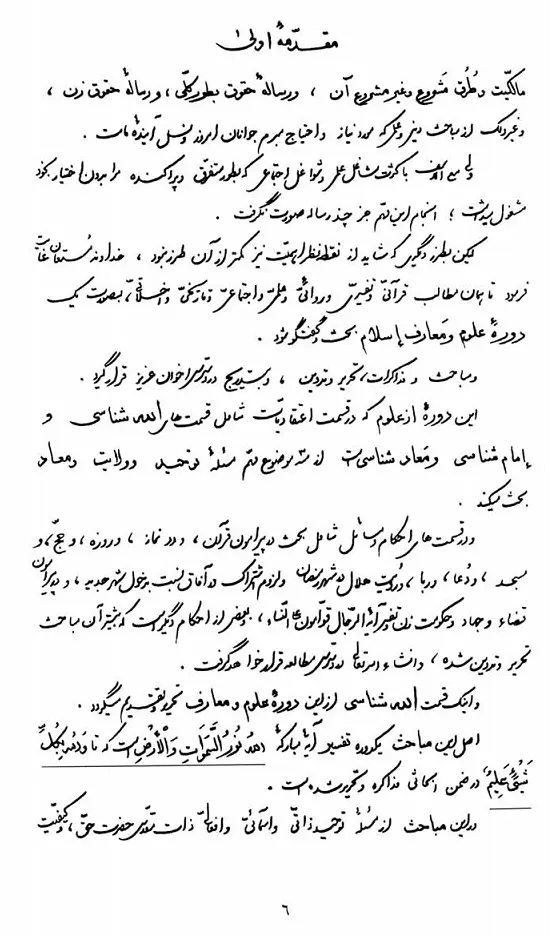 مقدّمهٔ اولیٰ
مالکیّت و طُرُق مَشروع و غیر مشروع آن ، و رسالهٔ حقوق بطور کلّی ، و رسالهٔ حقوق زن ،
و غیر ذلک از مباحث دینی و علمی که مورد نیاز و احتیاج مبرم جوانان امروز و نسل آیندهٔ ماست .
ولی مع الأسف با کثرت مشاغل علمی و شواغل اجتماعی که بطور متفرّق و پراکنده مرا بدون اختیار بخود
مشغول میداشت ؛ انجام این مهم جز چند رساله صورت نگرفت .
لیکن بطرز دیگری که شاید از نقطه نظر اهمیّت نیز کمتر از آن طرز نبود ، خداوند مُستعان عنایت
فرمود تا همان مطالب قرآنی و تفسیری و روائی و علمی و اجتماعی و تاریخی و اخلاقی ، بصورت یک
دورهٔ علوم و معارف إسلام بحث و گفتگو شود .
و مباحث و مذاکرات ، تحریر و تدوین ، و بتدریج در دسترس اخوان عزیز قرار گیرد .
این دورهٔ از علوم که در قسمت اعتقادیّات شامل قسمت‌های الله شناسی و
إمام شناسی و مَعاد شناسی است از سه موضوع مهم مسئلهٔ توحید و ولایت و معاد
بحث میکند .
و در قسمت‌های احکام و مسائل شامل بحث در پیرامون قرآن ، و در نماز ، و روزه ، و حجّ ، و
مسجد ، و دُعا ، و ربا ، و رؤیت هلال در شهر رمضان و لزوم اشتراک در آفاق نسبت بدخول شهر جدید ، و پیرامون
قضاء و جهاد و حکومت زن و تفسیر آیهٔ الرّجال قوّامون علی النّساء ، و بعضی از احکام دیگر است که بیشتر آن مباحث
تحریر و تدوین شده ، و انشاء الله تعالی در دسترس مطالعه قرار خواهد گرفت .
و اینک قسمت الله شناسی از این دورهٔ علوم و معارف تحریر و تقدیم میگردد .
اصل این مباحث یکدوره تفسیر آیهٔ مبارکهٔ اللهُ نُورُ السَّمَوَاتِ وَالْأَرْضِ است که تا وَاللهُ بِكُلِّ
شَيْءٍ عَلِيمٌ در ضمن ابحاثی مذاکره و تحریر شده است .
در این مباحث از مسئلهٔ توحید ذاتی و اسمائی و افعالی ذات مقدّس حضرت حقّ ، و کیفیّت
٦